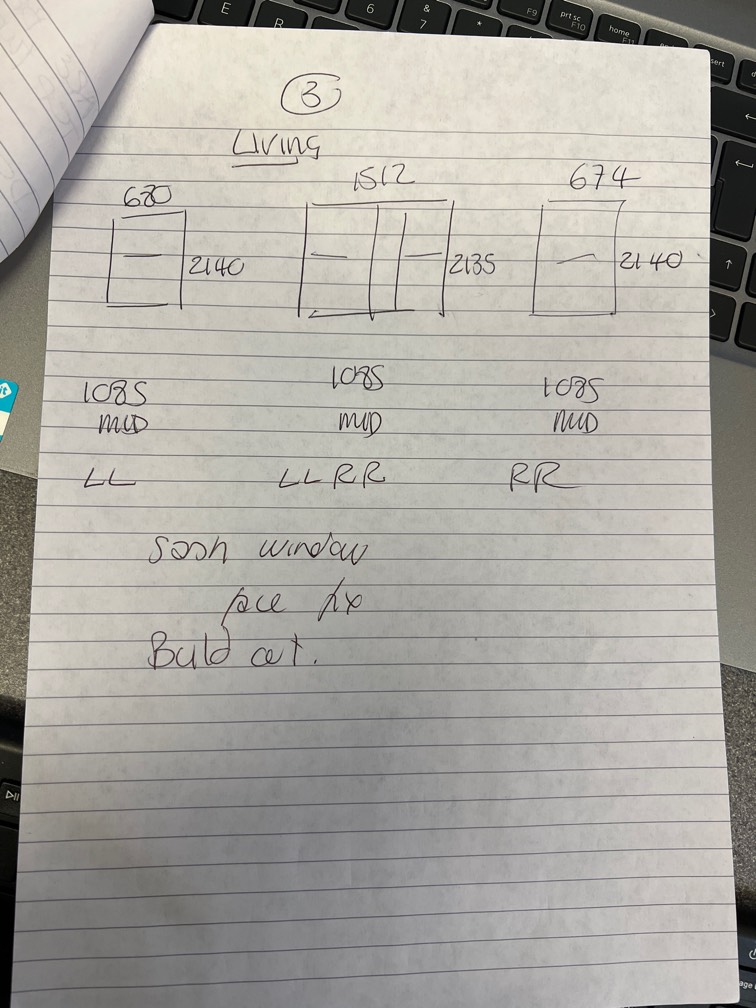 3
Living
630 1512 674
2140 2135 2140
1085 1085 1085
MID MID MID
LL LLRR RR
Sash window
face fix
Build out.
E R 6 & 7 * F9 prt sc F10 home F11